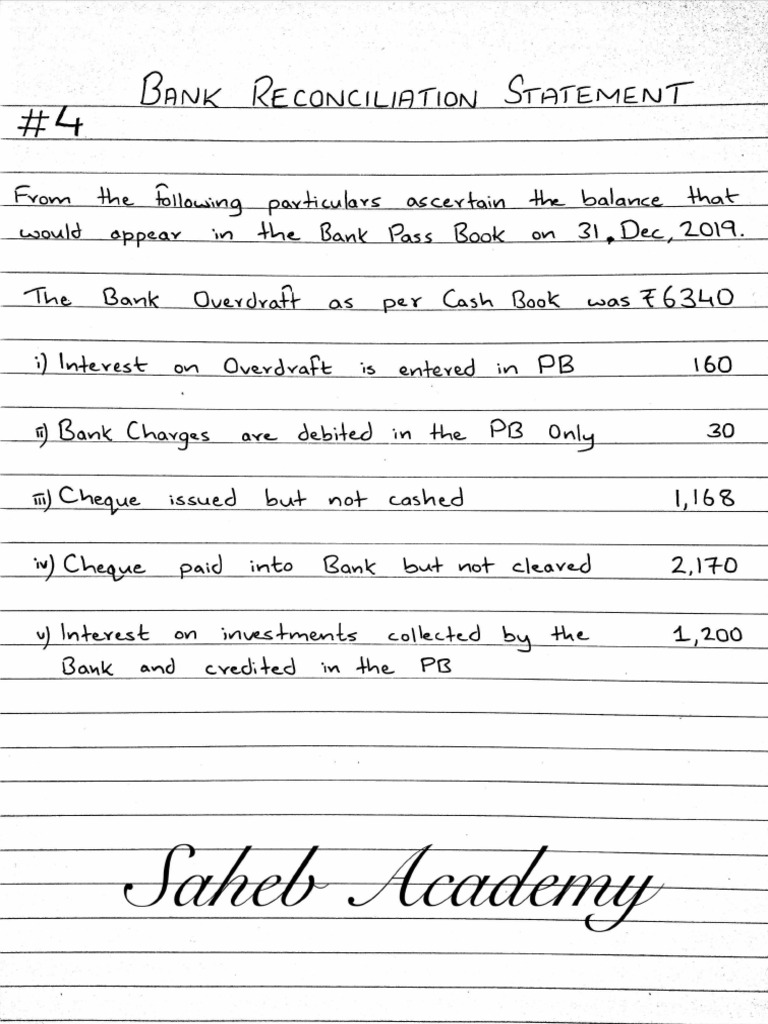 BANK RECONCILIATION STATEMENT
#4
From the following particulars ascertain the balance that
would appear in the Bank Pass Book on 31, Dec, 2019.
The Bank Overdraft as per Cash Book was ₹6340
i) Interest on Overdraft is entered in PB 160
ii) Bank Charges are debited in the PB Only 30
iii) Cheque issued but not cashed 1,168
iv) Cheque paid into Bank but not cleared 2,170
v) Interest on investments collected by the 1,200
Bank and credited in the PB
Saheb Academy